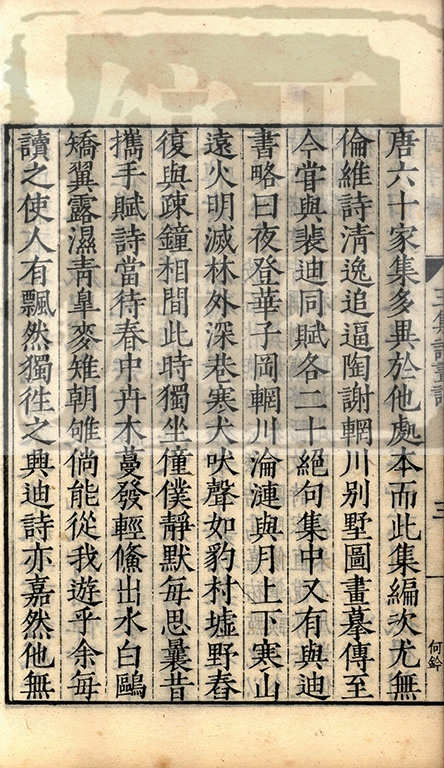 唐六十家集多異於他處本而此集編次尤無
倫維詩清逸追逼陶謝輞川别墅圖畫摹傳至
今甞與裴迪同賦各二十絕句集中又有與迪
書略曰夜登華子岡輞川淪漣與月上下寒山
遠火明滅林外深巷寒犬吠聲如豹村墟野舂
復與疎鐘相間此時獨坐僮僕靜默每思曩昔
攜手賦詩當待春中卉木蔓發輕鯈出水白鷗
矯翼露濕青臯麥雉朝雊倘能從我遊乎余每
讀之使人有飄然獨徃之興迪詩亦嘉然他無
三
何鈐